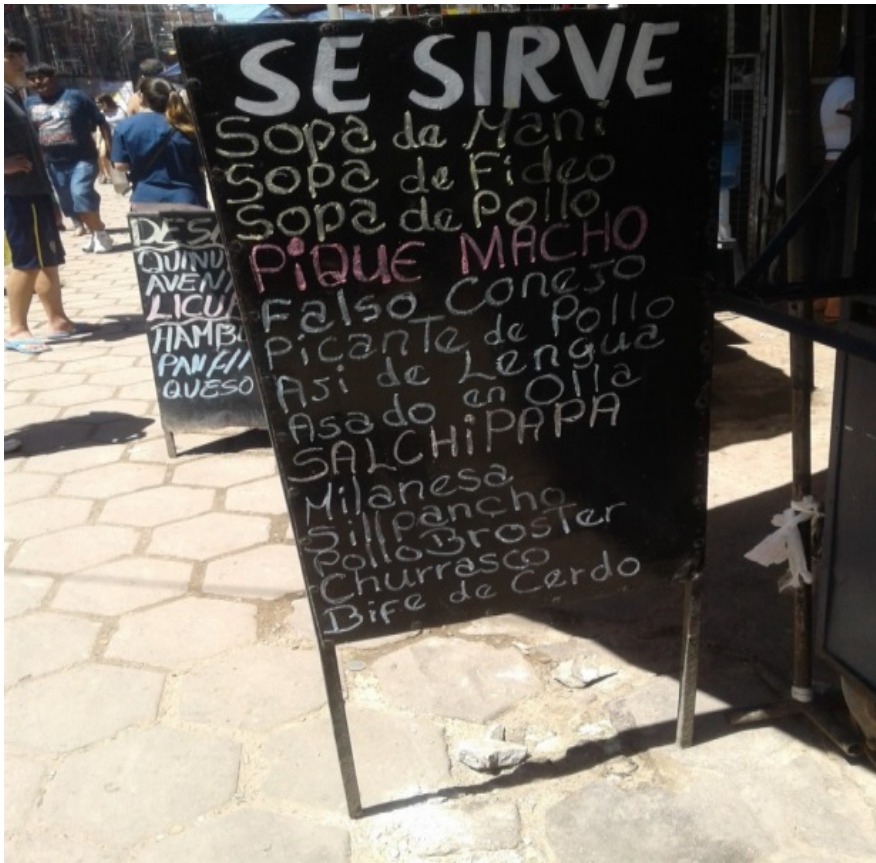 SE SIRVE
Sopa de Mani
Sopa de Fideo
Sopa de Pollo
PiQUE MACHO
Falso Conejo
Picante de Pollo
Asi de Lengua
Asado en Olla
SALCHiPAPA
Milanesa
Sillpancho
Pollo Broster
Churrasco
Bife de Cerdo
QUESO